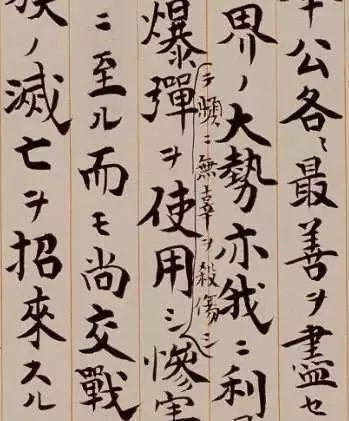 公各〻最善ヲ盡セ
界ノ大勢亦我ニ利
頻ニ無辜ヲ殺傷シ
爆彈ヲ使用シ慘
ニ至ル而モ尚交戰
ノ滅亡ヲ招來スル